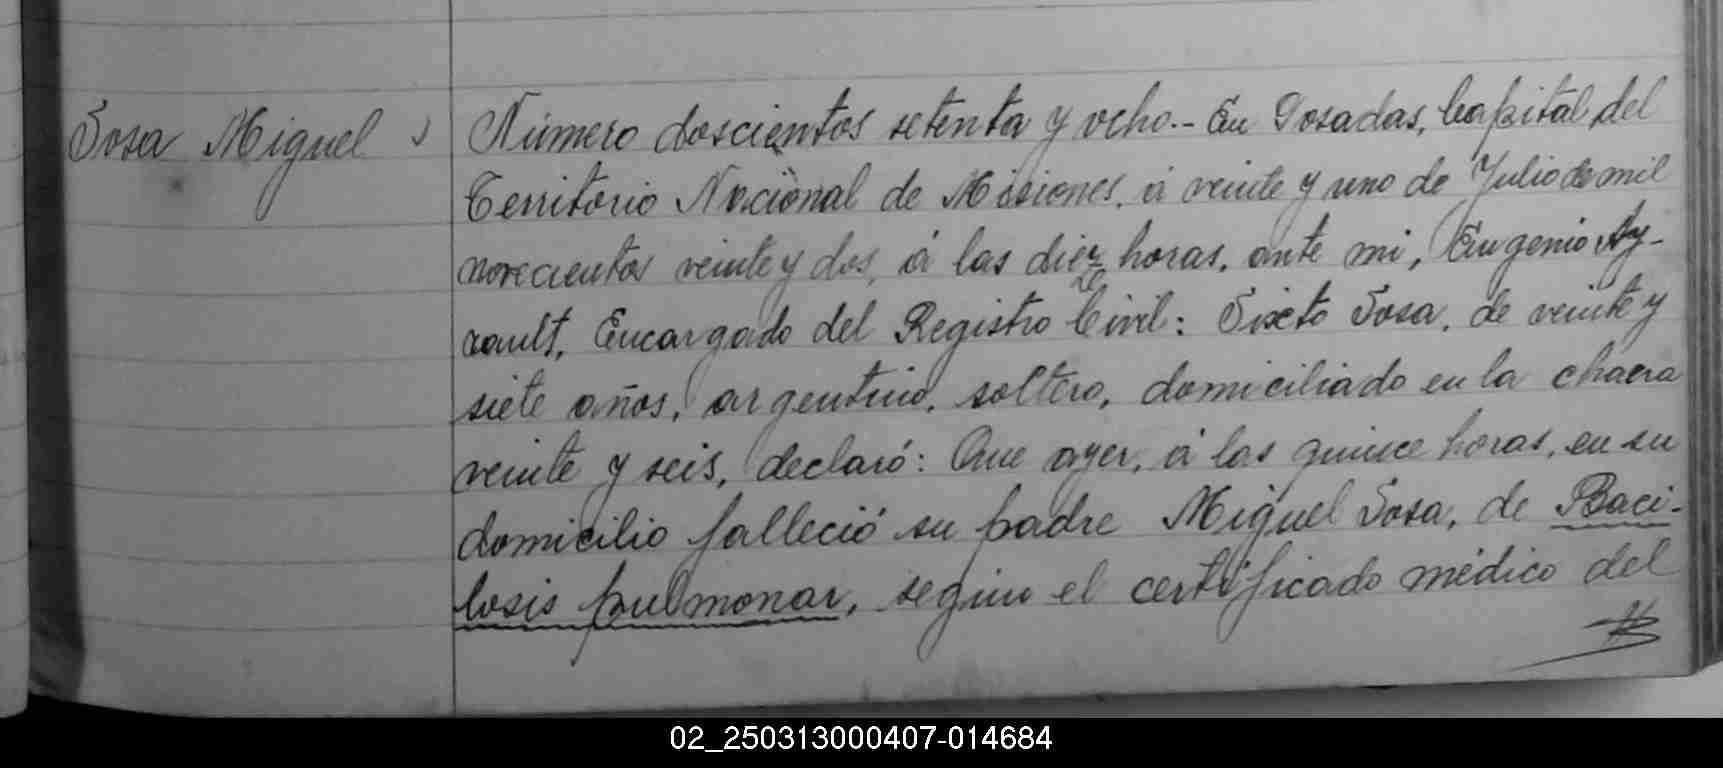 Sosa Miguel
Número doscientos setenta y ocho.- En Posadas, Capital del
Territorio Nacional de Misiones, á veinte y uno de Julio de mil
novecientos veinte y dos, á las diez horas, ante mi, Eugenio Ay-
rault, Encargado del Registro Civil: Sixto Sosa, de veinte y
siete años, argentino, soltero, domiciliado en la chacra
veinte y seis, declaró: Que ayer, á las quince horas, en su
domicilio falleció su padre Miguel Sosa, de Baci-
losis pulmonar, segun el certificado médico del
02_250313000407-014684